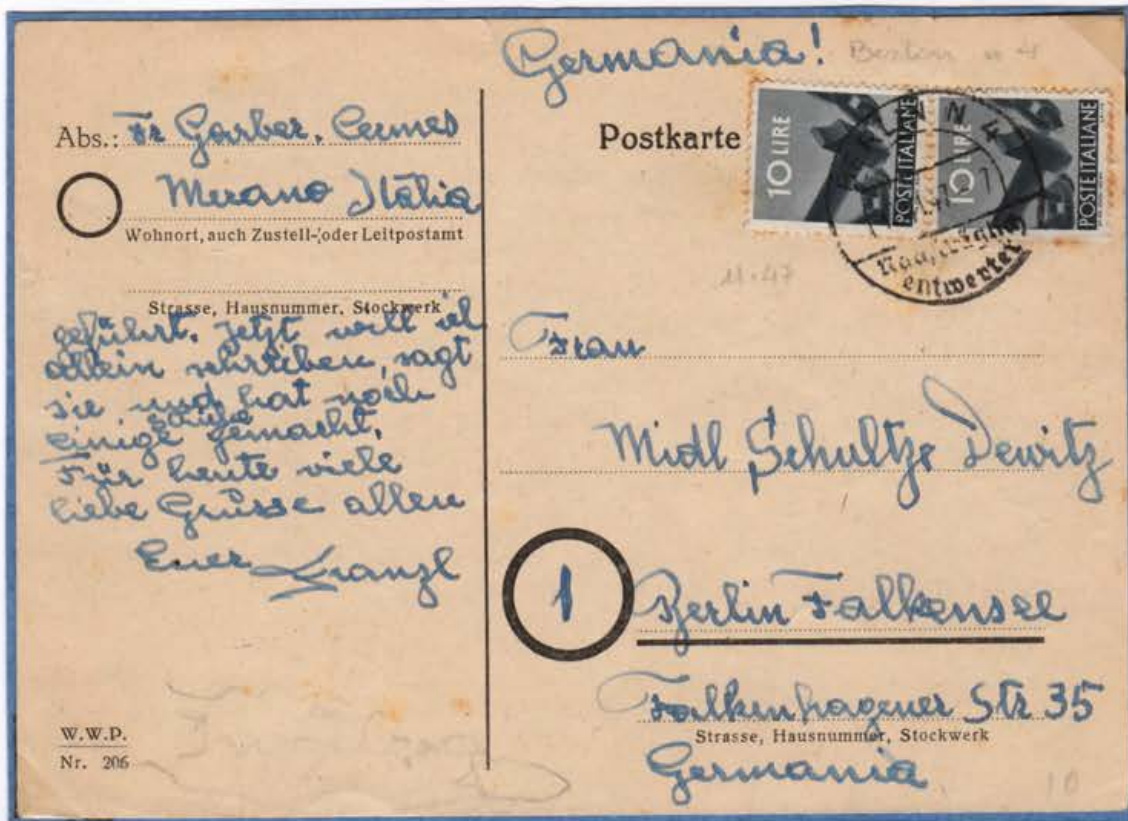 Germania!
Abs.: Fr Garber. Cermes
Merano Italia
Wohnort, auch Zustell- oder Leitpostamt
Strasse, Hausnummer, Stockwerk
geführt. Jetzt will ich
allein schreiben, sagt
sie und hat noch
einige gemacht.
Für heute viele
liebe Grüsse allen
Euer Franzl
W.W.P.
Nr. 206
Postkarte
10 LIRE
POSTE ITALIANE
10 LIRE
POSTE ITALIANE
Nachträglich
entwertet
11.47
Frau
Midl Schultze Dewitz
1
Berlin Falkensee
Falkenhagener Str 35
Strasse, Hausnummer, Stockwerk
Germania
10